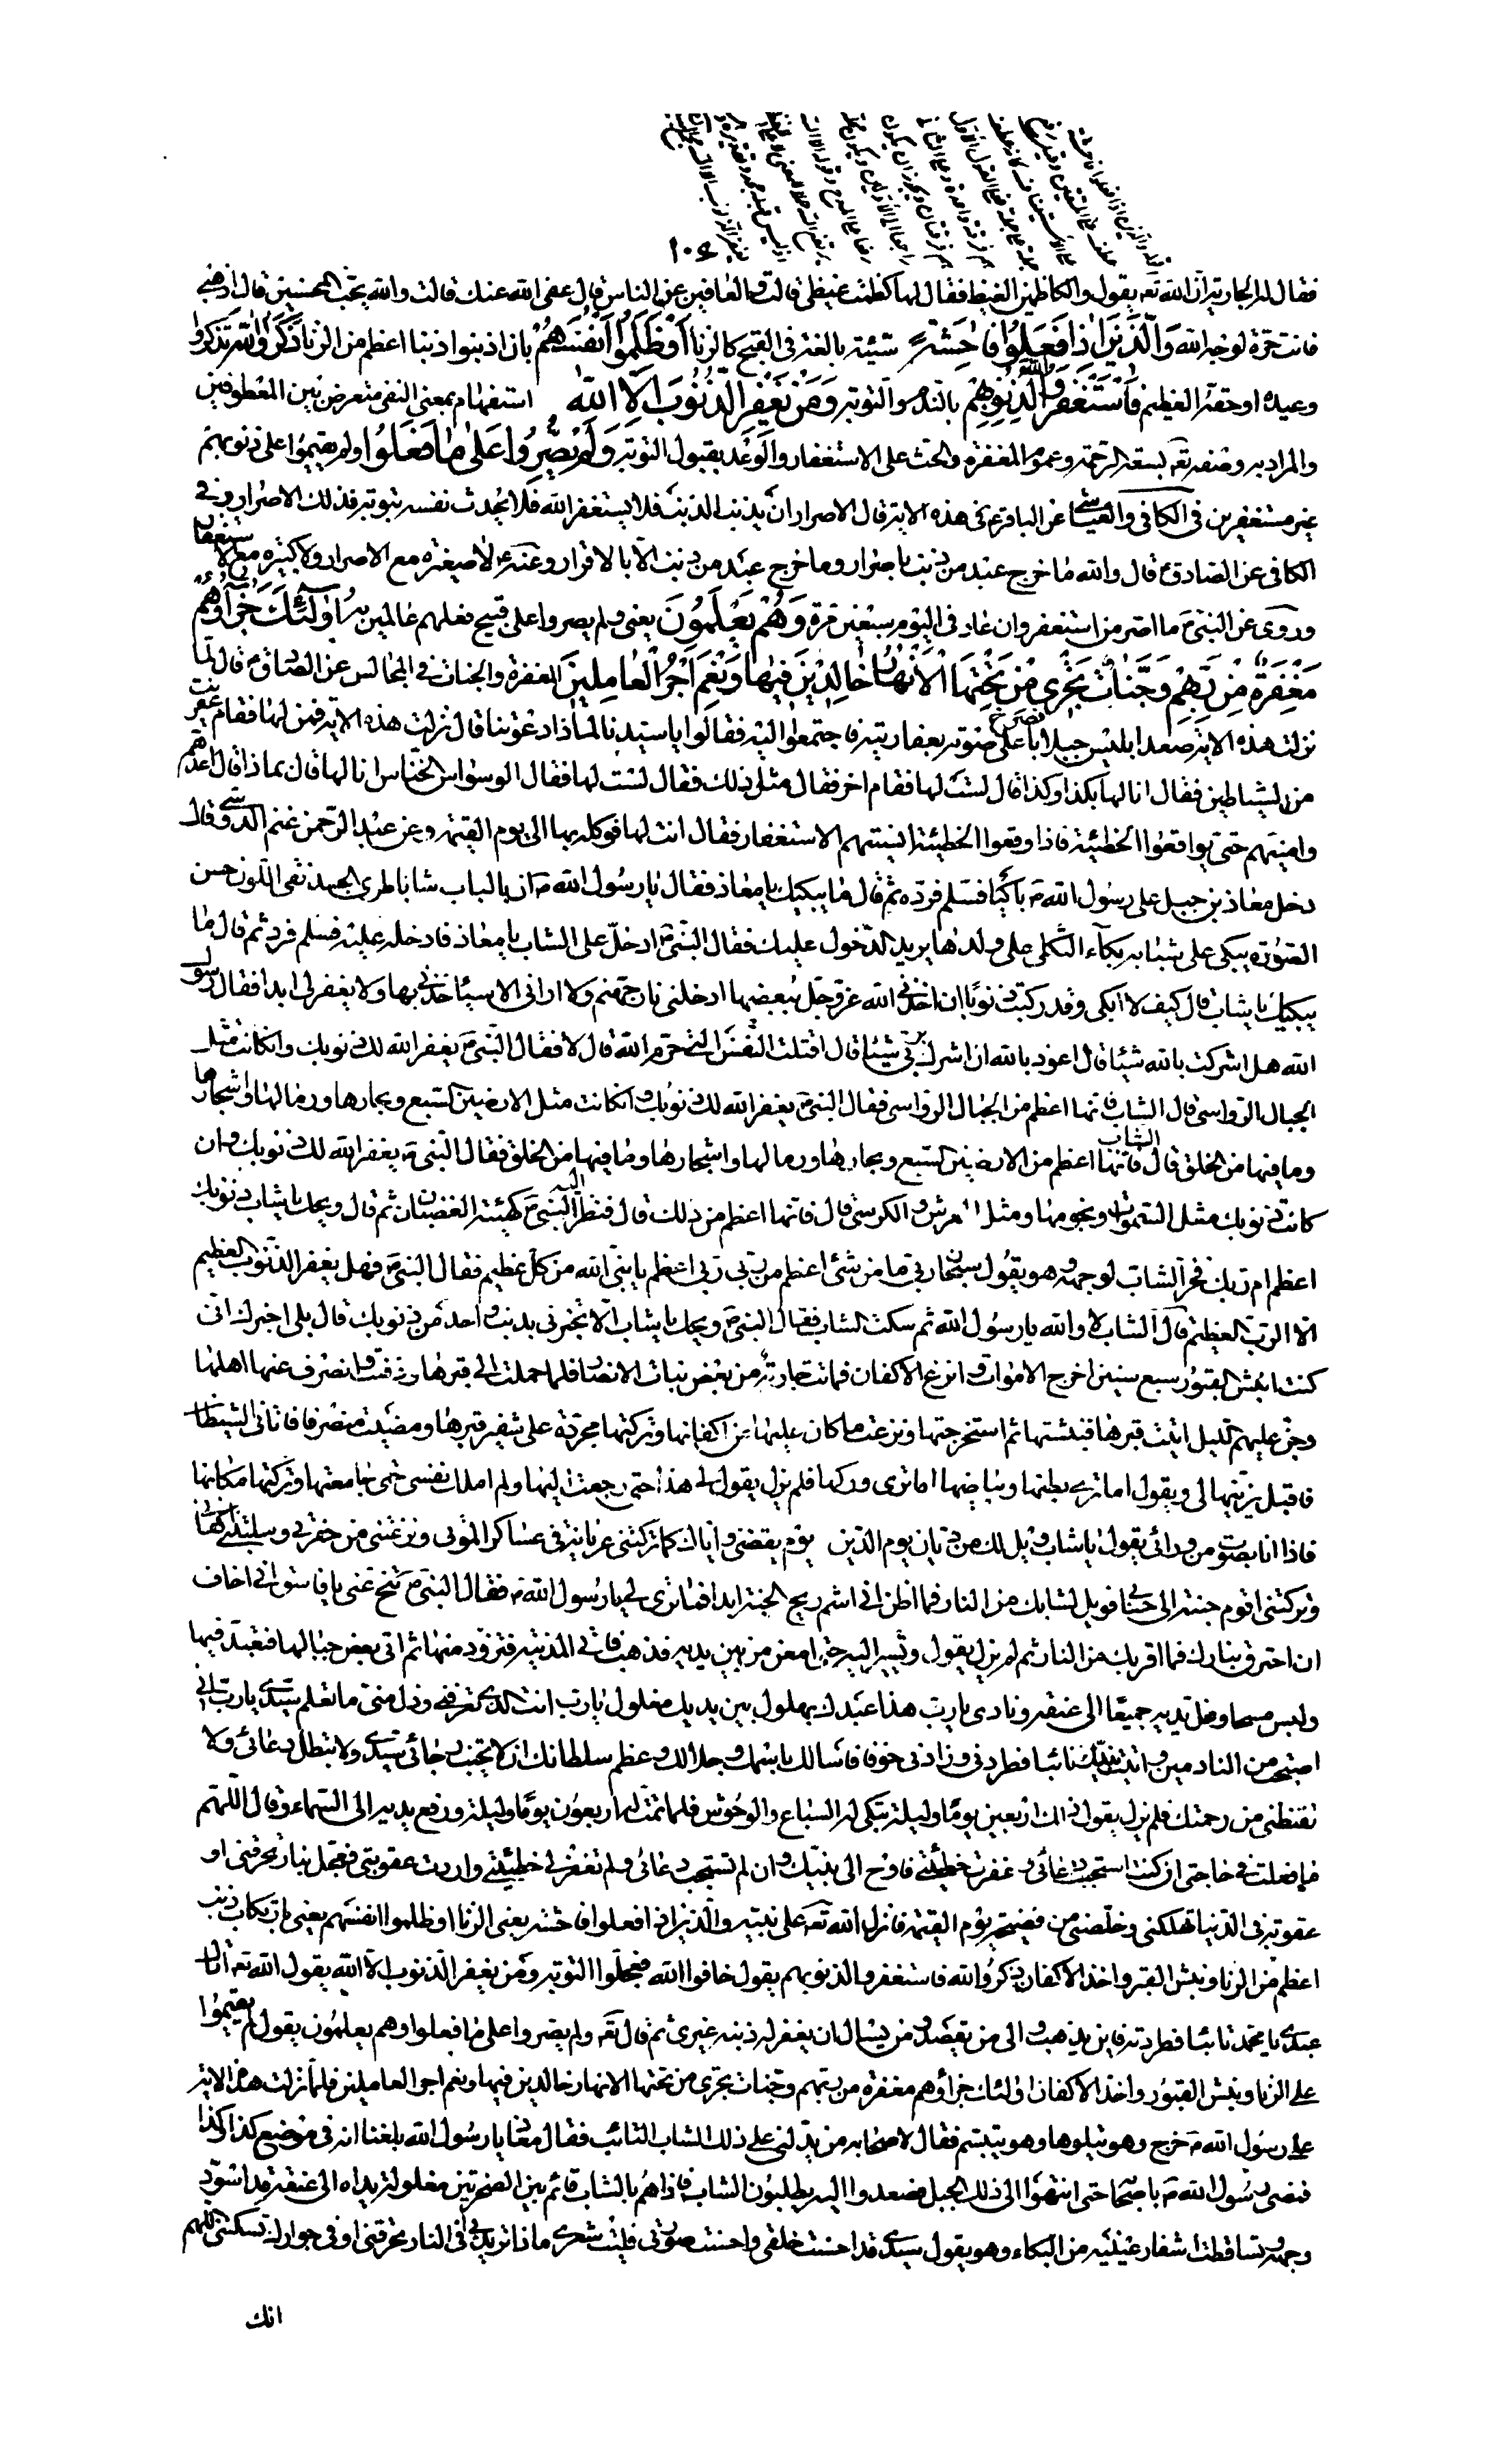 ١٠٤
فقالت له الجارية ان الله تعه يقول والكاظمين الغيظ فقال لها كظمت غيظى قالت والعافين عن الناس قال عفى الله عنك قالت والله يحب المحسنين قال اذهبى
فانت حرة لوجه الله وَالَّذينَ اِذا فَعَلُوا فاحِشَةً سيئة بالغة فى القبح كالزنا اَوْ ظَلَمُوا اَنْفُسَهُمْ بان اذنبوا ذنبا اعظم من الزنا ذَكَرُوا اللّهَ تذكروا
وعيده او حقه العظيم فَاسْتَغْفَرُوا لِذُنُوبِهِمْ بالندم والتوبة وَمَنْ يَغْفِرُ الذُّنُوبَ اِلَّا اللّهُ استفهام بمعنى النفى معترض بين المعطوفين
والمراد به وصفه تعه بسعة الرحمة وعموم المغفرة والحث على الاستغفار والوعد بقبول التوبة وَلَمْ يُصِرُّوا عَلى ما فَعَلُوا ولم يقيموا على ذنوبهم
غير مستغفرين فى الكافى والعياشى عن الباقر ع فى هذه الاية قال الاصرار ان يذنب الذنب فلا يستغفر الله فلا يحدث نفسه بتوبة فذلك الاصرار وفى
الكافى عن الصادق ع قال والله ما خرج عبد من ذنب باصرار وما خرج عبد من ذنب الا بالاقرار وعنه ع لا صغيرة مع الاصرار ولا كبيرة مع الاستغفار
وروى عن النبى ص ما اصر من استغفر وان عاد فى اليوم سبعين مرة وَهُمْ يَعْلَمُونَ يعنى ولم يصروا على قبيح فعلهم عالمين به اُولئِكَ جَزاؤُهُمْ
مَغْفِرَةٌ مِنْ رَبِّهِمْ وَجَنّاتٌ تَجْرى مِنْ تَحْتِهَا الْاَنْهارُ خالِدينَ فيها وَنِعْمَ اَجْرُ الْعامِلينَ المغفرة والجنات فى المجالس عن الصادق ع قال لما
نزلت هذه الاية صعد ابليس جبلا فصرخ باعلى صوته بعفاريته فاجتمعوا اليه فقالوا يا سيدنا لماذا دعوتنا قال نزلت هذه الاية فمن لها فقام عفريت
من الشياطين فقال انا لها بكذا وكذا قال لست لها فقام اخر فقال مثل ذلك فقال لست لها فقال الوسواس الخناس انا لها قال بماذا قال اعدهم
وامنيهم حتى يواقعوا الخطيئة فاذا وقعوا الخطيئة انسيتهم الاستغفار فقال انت لها فوكله بها الى يوم القيمة وعن عبد الرحمن غنم الدوسى قال
دخل معاذ بن جبل على رسول الله ص باكيا فسلم فرده ثم قال ما يبكيك يا معاذ فقال يا رسول الله ص ان بالباب شابا طرى الجسد نقى اللون حسن
الصورة يبكى على شبابه بكاء الثكلى على ولدها يريد الدخول عليك فقال النبى ص ادخل على الشاب يا معاذ فادخله عليه فسلم فرد ثم قال ما
يبكيك يا شاب قال كيف لا ابكى وقد ركبت ذنوبا ان اخذنى الله عز وجل ببعضها ادخلنى نار جهنم ولا ارانى الا سياخذنى بها ولا يغفر لى ابدا فقال رسول
الله هل اشركت بالله شيئا قال اعوذ بالله ان اشرك بربى شيئا قال اقتلت النفس التى حرم الله قال لا فقال النبى ص يغفر الله لك ذنوبك وان كانت مثل
الجبال الرواسى قال الشاب فانها اعظم من الجبال الرواسى فقال النبى ص يغفر الله لك ذنوبك وان كانت مثل الارضين السبع وبحارها ورمالها واشجارها
وما فيها من الخلق قال الشاب فانها اعظم من الارضين السبع وبحارها ورمالها واشجارها وما فيها من الخلق فقال النبى ص يغفر الله لك ذنوبك وان
كانت ذنوبك مثل السموات ونجومها ومثل العرش والكرسى قال فانها اعظم من ذلك قال فنظر اليه النبى ص كهيئة الغضبان ثم قال ويحك يا شاب ذنوبك
اعظم ام ربك فخر الشاب لوجهه وهو يقول سبحان ربى ما من شئ اعظم من ربى ربى اعظم يا نبى الله من كل عظيم فقال النبى ص فهل يغفر الذنوب العظيم
الا الرب العظيم قال الشاب لا والله يا رسول الله ثم سكت الشاب فقال النبى ص ويحك يا شاب الا تخبرنى بذنب واحد من ذنوبك قال بلى اخبرك انى
كنت انبش القبور سبع سنين اخرج الاموات وانزع الاكفان فماتت جارية من بعض بنات الانصار فلما حملت الى قبرها ودفنت وانصرف عنها اهلها
وجن عليهم الليل اتيت قبرها فنبشتها ثم استخرجتها ونزعت ما كان عليها من اكفانها وتركتها مجردة على شفير قبرها ومضيت منصرفا فاتانى الشيطان
فاقبل يزينها لى ويقول اما ترى بطنها وبياضها اما ترى وركها فلم يزل يقول لى هذا حتى رجعت اليها ولم املك نفسى حتى جامعتها وتركتها مكانها
فاذا انا بصوت من ورائى يقول يا شاب ويل لك من ديان يوم الدين يوم يقفنى واياك كما تركتنى عريانة فى عساكر الموتى ونزعتنى من حفرتى وسلبتنى اكفانى
وتركتنى اقوم جنبة الى حسابى فويل لشبابك من النار فما اظن انى اشم ريح الجنة ابدا فما ترى لى يا رسول الله ص فقال النبى ص تنح عنى يا فاسق انى اخاف
ان احترق بنارك فما اقربك من النار ثم لم يزل يقول ويشير اليه حتى امعن من بين يديه فذهب فاتى المدينة فتزود منها ثم اتى بعض جبالها فتعبد فيها
ولبس مسحا وغل يديه جميعا الى عنقه ونادى يا رب هذا عبدك بهلول بين يديك مغلول يا رب انت الذى تعرفنى وزل منى ما تعلم سيدى يا رب انى
اصبحت من النادمين واتيت نبيك تائبا فطردنى وزادنى خوفا فاسالك باسمك وجلالك وعظم سلطانك ان لا تخيب رجائى سيدى ولا تبطل دعائى ولا
تقنطنى من رحمتك فلم يزل يقول ذلك اربعين يوما وليلة تبكى له السباع والوحوش فلما تمت له اربعون يوما وليلة ورفع يديه الى السماء وقال اللهم
ما فعلت فى حاجتى ان كنت استجبت دعائى وغفرت خطيئتى فاوح الى نبيك وان لم تستجب دعائى ولم تغفر لى خطيئتى واردت عقوبتى فعجل بنار تحرقنى او
عقوبة فى الدنيا تهلكنى وخلصنى من فضيحة يوم القيمة فانزل الله تعه على نبيه والذين اذا فعلوا فاحشة يعنى الزنا او ظلموا انفسهم يعنى بارتكاب ذنب
اعظم من الزنا ونبش القبر واخذ الاكفان ذكروا الله فاستغفروا لذنوبهم يقول خافوا الله فعجلوا التوبة ومن يغفر الذنوب الا الله يقول الله تعه اتاك
عبدى يا محمد تائبا فطردته فاين يذهب والى من يقصد ومن يسال ان يغفر له ذنبه غيرى ثم قال تعه ولم يصروا على ما فعلوا وهم يعلمون يقول لم يقيموا
على الزنا ونبش القبور واخذ الاكفان اولئك جزاؤهم مغفرة من ربهم وجنات تجرى من تحتها الانهار خالدين فيها ونعم اجر العاملين فلما نزلت هذه الاية
على رسول الله ص خرج وهو يتلوها وهو يتبسم فقال لاصحابه من يدلنى على ذلك الشاب التائب فقال معاذ يا رسول الله بلغنا انه فى موضع كذا وكذا
فمضى رسول الله ص باصحابه حتى انتهوا الى ذلك الجبل فصعدوا اليه يطلبون الشاب فاذا هم بالشاب قائم بين الصخرتين مغلولة يداه الى عنقه قد اسود
وجهه وتساقطت اشفار عينيه من البكاء وهو يقول سيدى قد احسنت خلقى واحسنت صورتى فليت شعرى ماذا تريد بى افى النار تحرقنى او فى جوارك تسكننى اللهم
انك